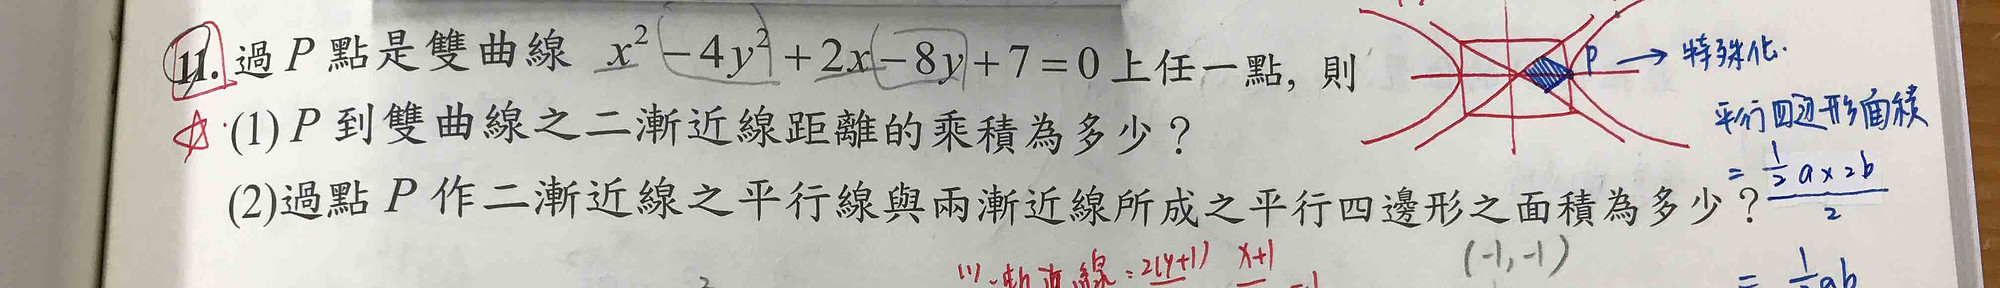 11. 過 P 點是雙曲線 x² − 4y² + 2x − 8y + 7 = 0 上任一點, 則
P → 特殊化.
(1) P 到雙曲線之二漸近線距離的乘積為多少？
平行四边形面積
= ½ a × 2b / 2
(2)過點 P 作二漸近線之平行線與兩漸近線所成之平行四邊形之面積為多少？
(1) 漸近線: 2(y+1) x+1
(-1, -1)
= ½ab